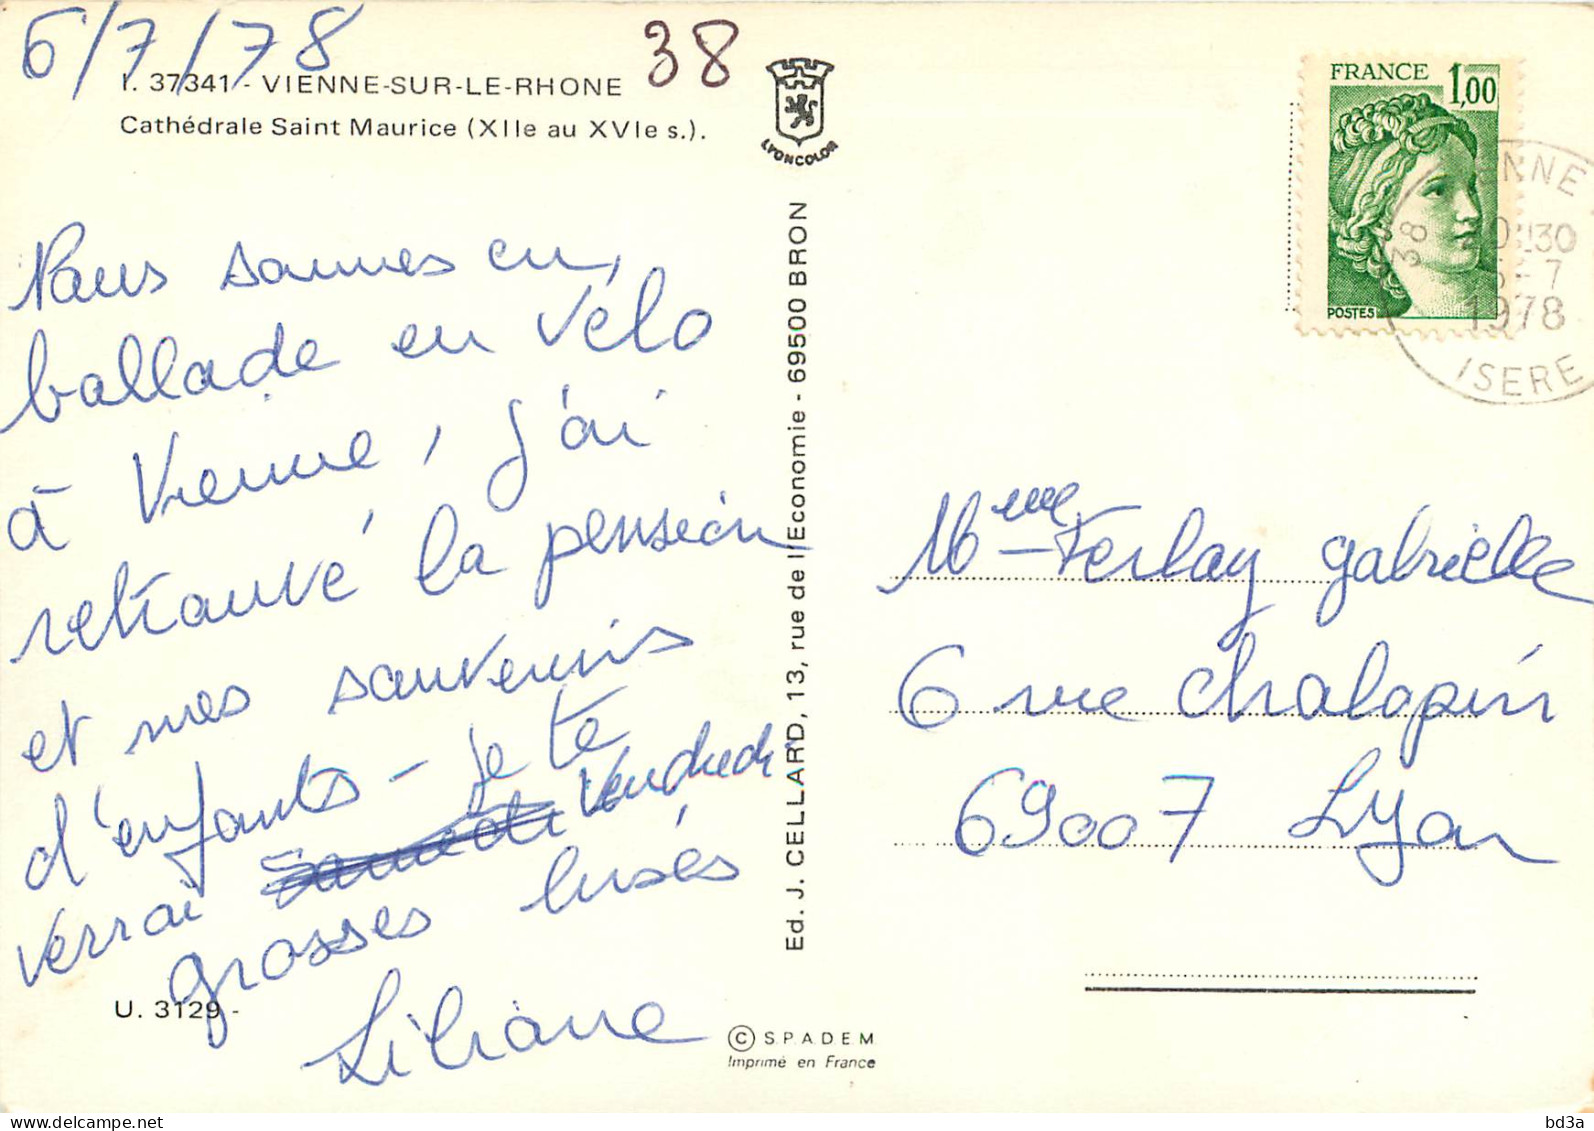 6/7/78
38
I. 37341 - VIENNE-SUR-LE-RHONE
Cathédrale Saint Maurice (XIIe au XVIe s.).
LYONCOLOR
Nous sommes en
ballade en vélo
à Vienne, j'ai
retrouvé la pension
et mes souvenirs
d'enfants - je te
verrai Samedi Vendredi
grosses bisés
Liliane
U. 3129 -
Ed. J. CELLARD, 13, rue de l'Economie - 69500 BRON
© S.P.A.D.E.M
Imprimé en France
FRANCE 1,00
POSTES
38
1978
ISERE
Mme Ferlay gabrielle
6 rue Chalopin
69007 Lyon
bd3a